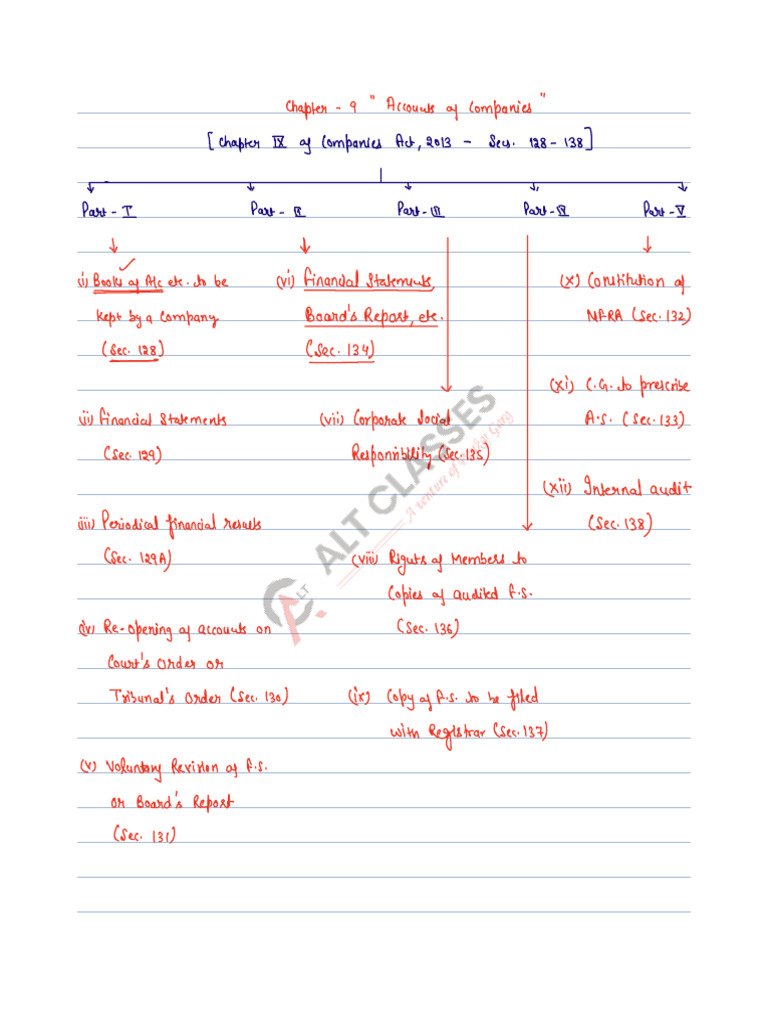 Chapter - 9 " Accounts of Companies "
[Chapter IX of Companies Act, 2013 - Secs. 128 - 138]
Part - I
Part - II
Part - III
Part - IV
Part - V
(i) Books of A/c etc. to be
kept by a Company
(Sec. 128)
(ii) Financial Statements
(Sec. 129)
(iii) Periodical financial results
(Sec. 129A)
(iv) Re-opening of accounts on
Court's Order or
Tribunal's Order (Sec. 130)
(v) Voluntary Revision of F.S.
or Board's Report
(Sec. 131)
(vi) Financial Statements,
Board's Report, etc.
(Sec. 134)
(vii) Corporate Social
Responsibility (Sec. 135)
(viii) Rights of Members to
Copies of audited F.S.
(Sec. 136)
(ix) Copy of F.S. to be filed
with Registrar (Sec. 137)
(x) Constitution of
NFRA (Sec. 132)
(xi) C.G. to prescribe
A.S. (Sec. 133)
(xii) Internal audit
(Sec. 138)
ALT CLASSES
LT